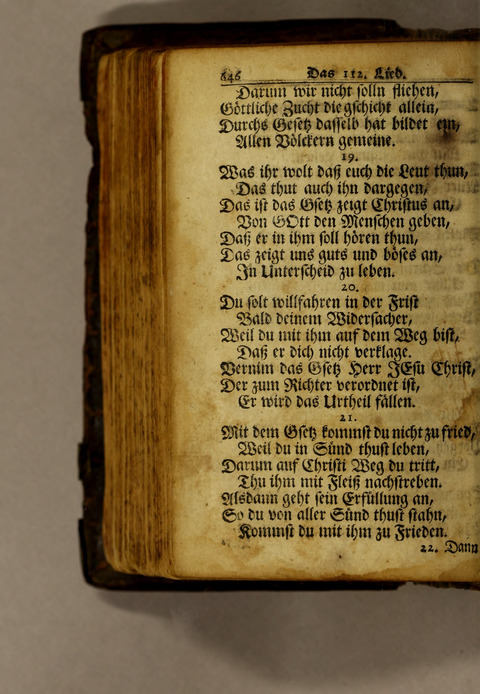 646 Das 112. Lied.
Darum wir nicht solln fliehen,
Göttliche Zucht die gschicht allein,
Durchs Gesetz dasselb hat bildet ein,
Allen Völckern gemeine.
19.
Was ihr wolt daß euch die Leut thun,
Das thut auch ihn dargegen,
Das ist das Gsetz zeigt Christus an,
Von GOtt den Menschen geben,
Daß er in ihm soll hören thun,
Das zeigt uns guts und böses an,
In Unterscheid zu leben.
20.
Du solt willfahren in der Frist
Bald deinem Widersacher,
Weil du mit ihm auf dem Weg bist,
Daß er dich nicht verklage.
Vernim das Gsetz Herr JEsu Christ,
Der zum Richter verordnet ist,
Er wird das Urtheil fällen.
21.
Mit dem Gsetz kommst du nicht zu fried,
Weil du in Sünd thust leben,
Darum auf Christi Weg du tritt,
Thu ihm mit Fleiß nachstreben.
Alsdann geht sein Erfüllung an,
So du von aller Sünd thust stahn,
Kommst du mit ihm zu Frieden.
22. Dann